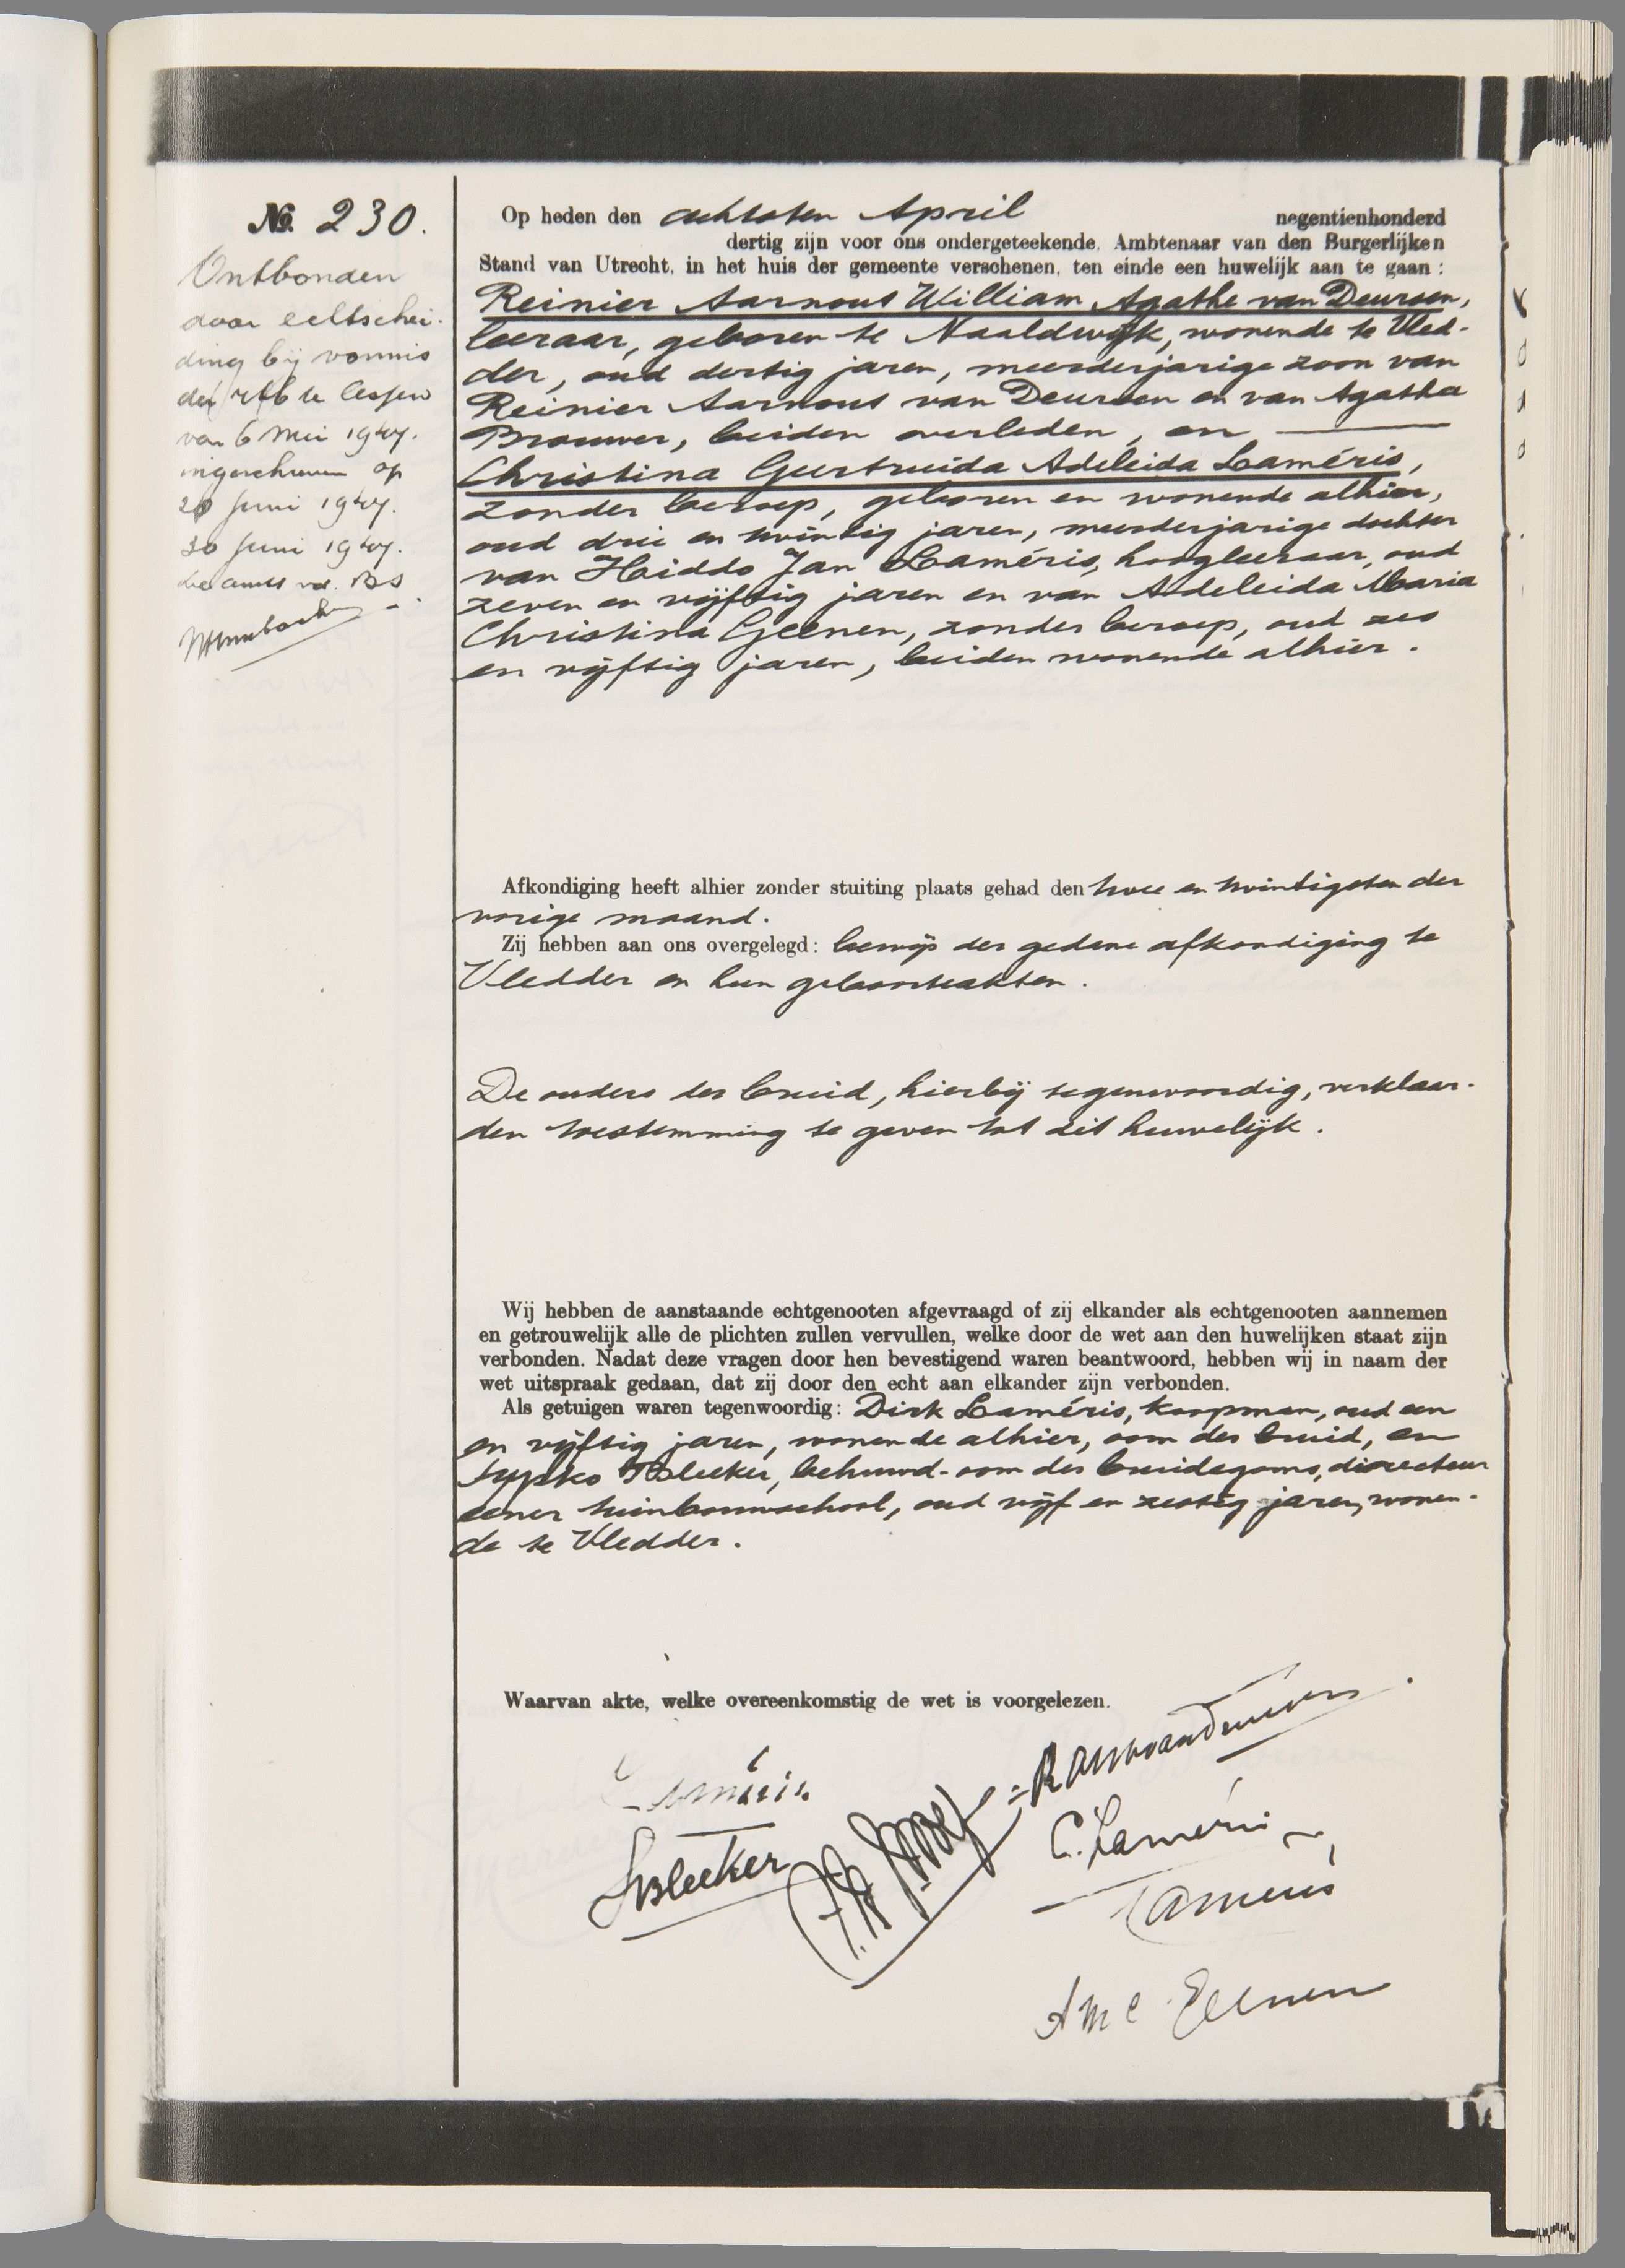 No. 230.
Ontbonden
door echtschei-
ding bij vonnis
der rb te Assen
van 6 Mei 1947.
ingeschreven op
20 Juni 1947.
30 Juni 1947.
Op heden den achtsten April negentienhonderd
dertig zijn voor ons ondergeteekende, Ambtenaar van den Burgerlijken
Stand van Utrecht, in het huis der gemeente verschenen, ten einde een huwelijk aan te gaan :
Reinier Aarnout William Agathe van Deursen,
leeraar, geboren te Naaldwijk, wonende te Vled-
der, oud dertig jaren, meerderjarige zoon van
Reinier Aarnout van Deursen en van Agatha
Brouwer, beiden overleden, en
Christina Geertruida Adeleida Laméris,
zonder beroep, geboren en wonende alhier,
oud drie en twintig jaren, meerderjarige dochter
van Hiddo Jan Laméris, hoogleeraar, oud
zeven en vijftig jaren en van Adeleida Maria
Christina Geenen, zonder beroep, oud zes
en vijftig jaren, beiden wonende alhier.
Afkondiging heeft alhier zonder stuiting plaats gehad den twee en twintigsten der
vorige maand.
Zij hebben aan ons overgelegd: bewijs der gedane afkondiging te
Vledder en hun geboorteakten.
De ouders der bruid, hierbij tegenwoordig, verklaar-
den toestemming te geven tot dit huwelijk.
Wij hebben de aanstaande echtgenooten afgevraagd of zij elkander als echtgenooten aannemen
en getrouwelijk alle de plichten zullen vervullen, welke door de wet aan den huwelijken staat zijn
verbonden. Nadat deze vragen door hen bevestigend waren beantwoord, hebben wij in naam der
wet uitspraak gedaan, dat zij door den echt aan elkander zijn verbonden.
Als getuigen waren tegenwoordig: Dirk Laméris, koopman, oud een
en vijftig jaren, wonende alhier, oom der bruid, en
Sypko Bleeker, behuwd-oom des bruidegoms, directeur
eener tuinbouwschool, oud vijf en zestig jaren, wonen-
de te Vledder.
Waarvan akte, welke overeenkomstig de wet is voorgelezen.
Laméris
RAWAvanDeursen
SBleeker
C. Laméris
Laméris
AMC Geenen